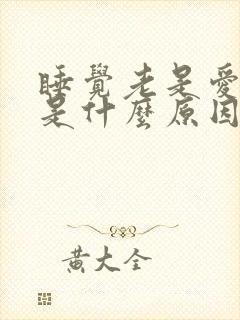 睡覺老是愛
是什麼原因
黃大全